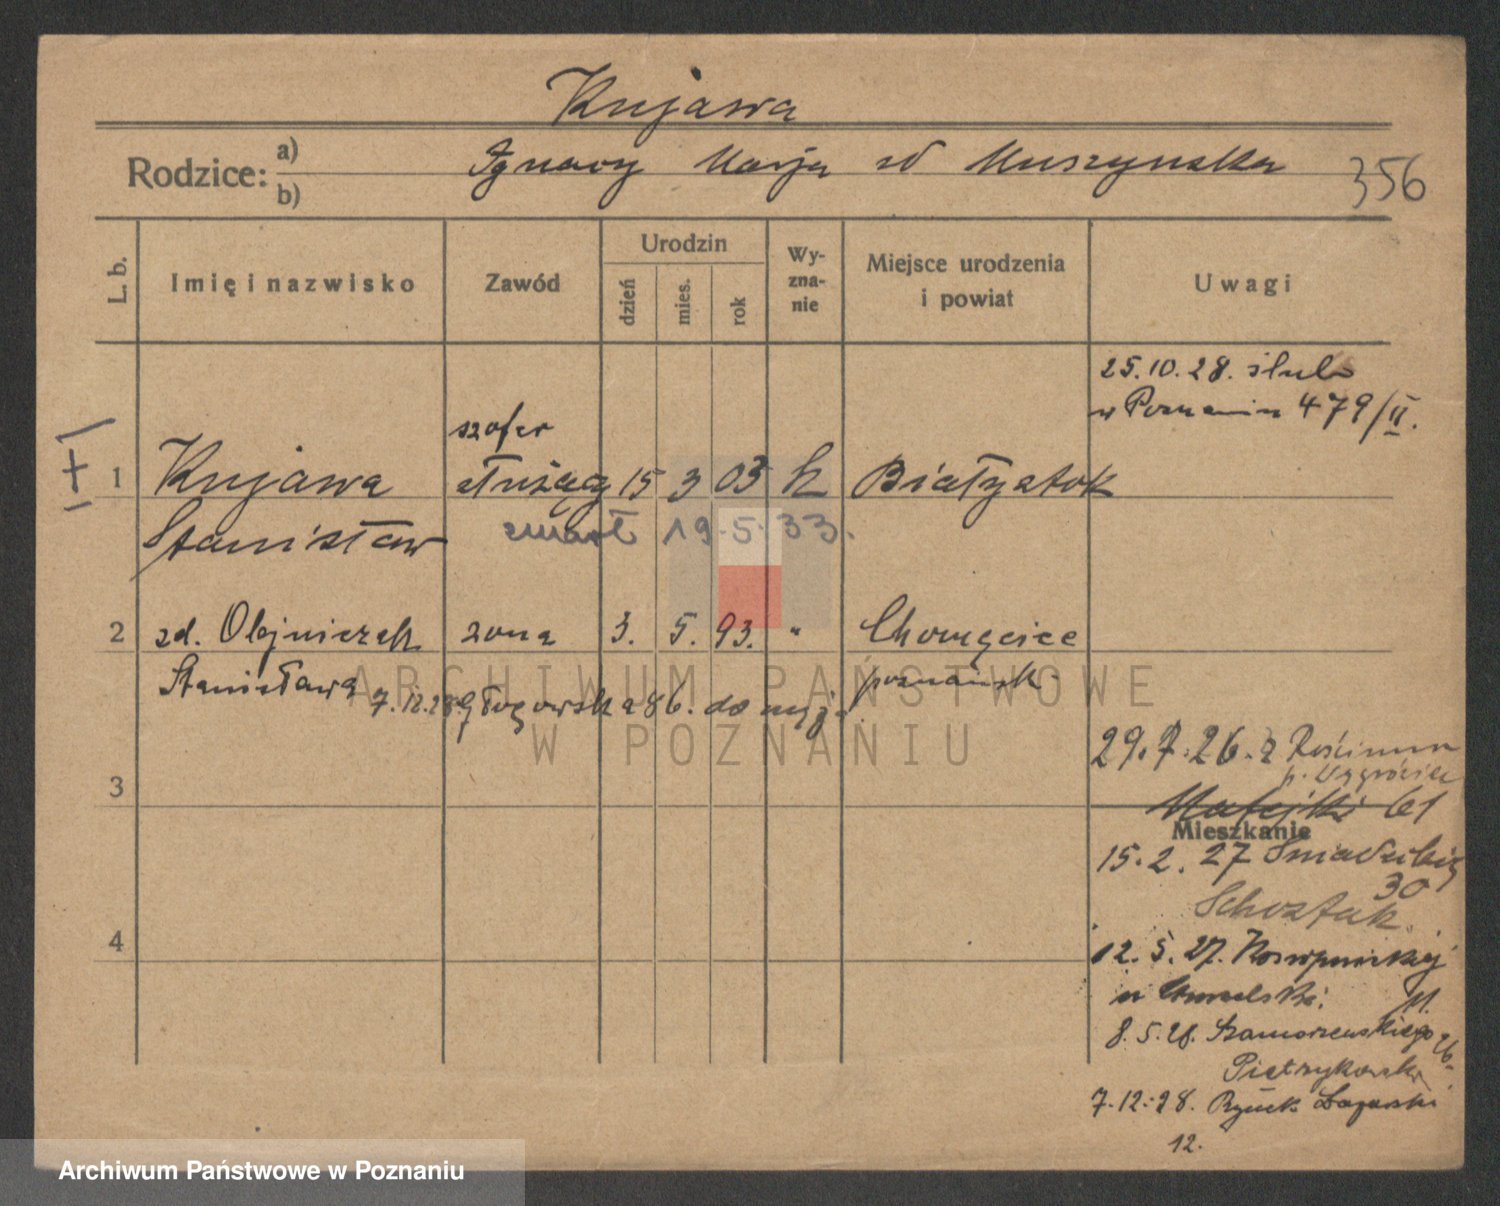 Kujawa
Rodzice: a)
b)
Ignacy Marja zd Muszynska
356
L. b.
Imię i nazwisko
Zawód
Urodzin
dzień
mies.
rok
Wy-
zna-
nie
Miejsce urodzenia
i powiat
Uwagi
25.10.28. ślub
w Poznaniu 479/II.
szofer
1 Kujawa służący 15 3 03 k Białystok
Stanisław
zmarł 19.5.33.
2 zd. Olejniczak żona 3. 5. 93. " Chomęcice
Stanisława
poznański
7.12.28. Głogowska 86. do
ARCHIWUM PAŃSTWOWE
W POZNANIU
29.7.26. z
3
Matejki 61
Mieszkanie
15.2.27 Śniadeckich
30
Schostak.
4
12.5.27.
11.
8.5.28. Szamarzewskiego 26.
Pietrzykowska
7.12.28. Rynek Łazarski
12.
Archiwum Państwowe w Poznaniu